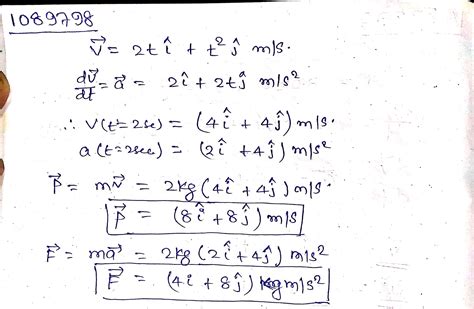 1089798
v⃗ = 2t î + t² ĵ m/s.
dv⃗/dt = a⃗ = 2î + 2tĵ m/s²
∴ v(t=2sec) = (4î + 4ĵ) m/s.
a(t=2sec) = (2î + 4ĵ) m/s²
P⃗ = mv⃗ = 2kg (4î + 4ĵ) m/s.
P⃗ = (8î + 8ĵ) m/s
F⃗ = ma⃗ = 2kg (2î + 4ĵ) m/s²
F⃗ = (4î + 8ĵ) kgm/s²